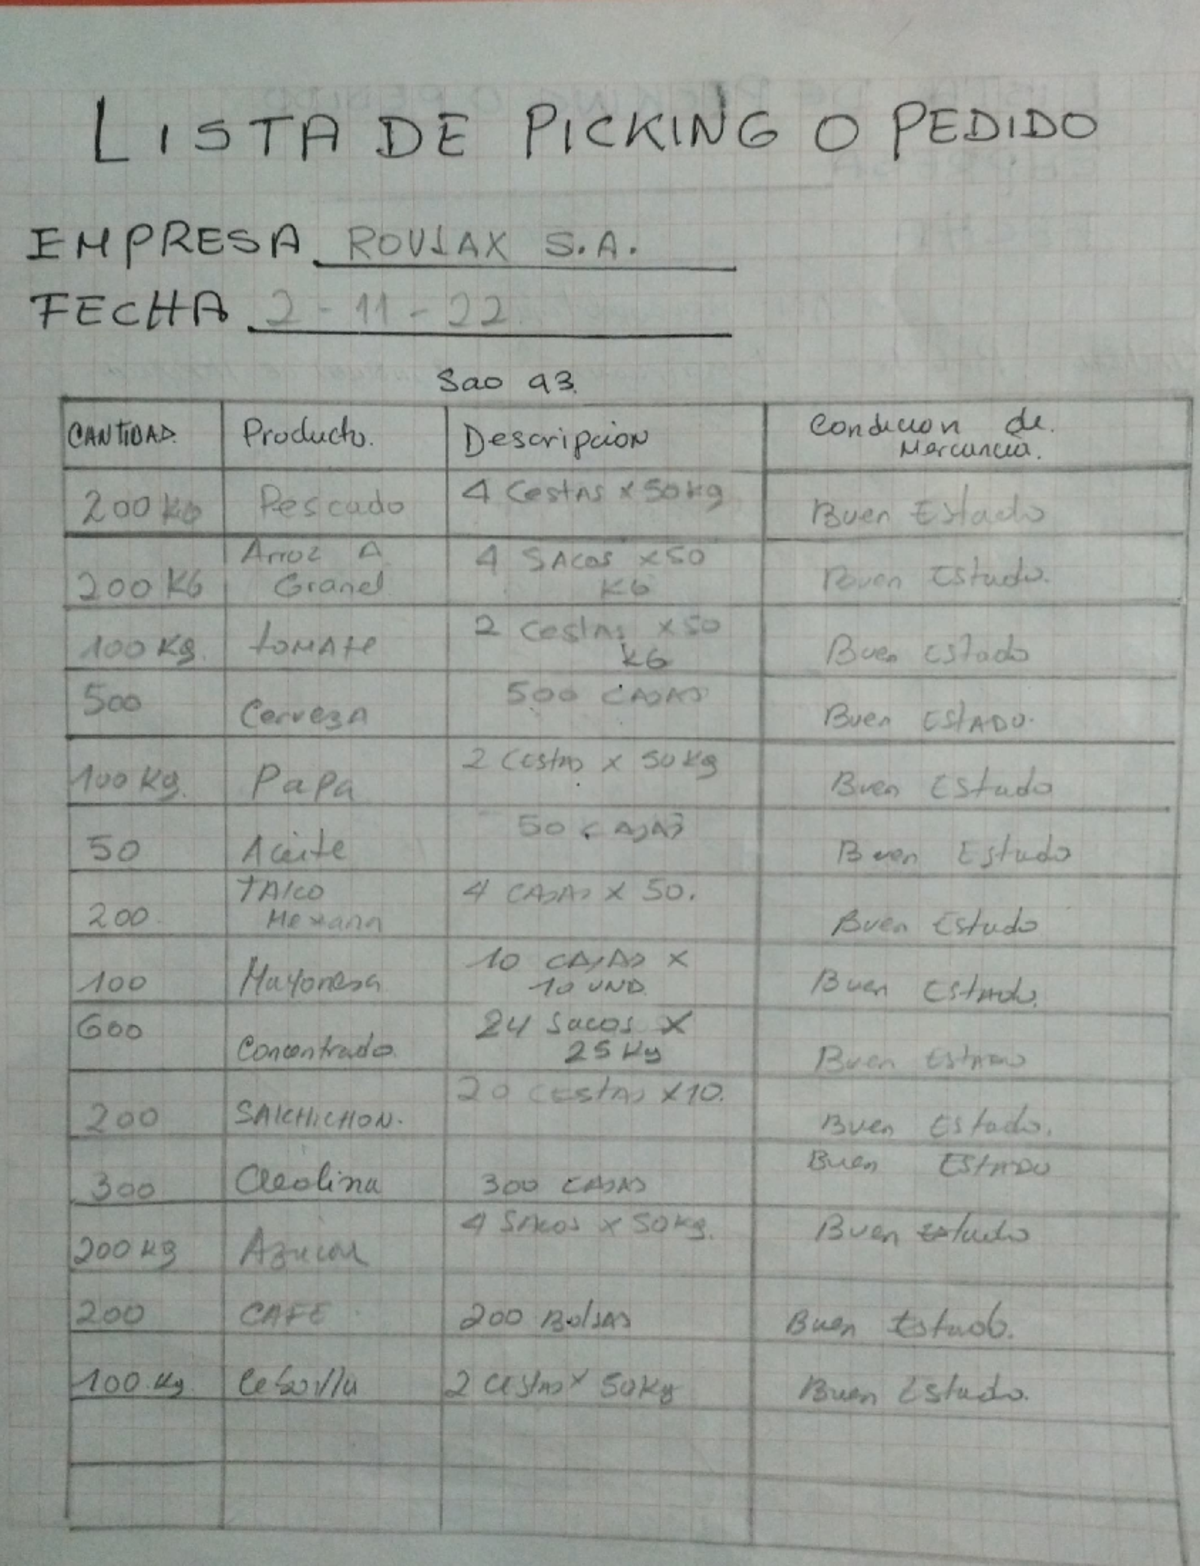 LISTA DE PICKING O PEDIDO
EMPRESA ROVIAX S.A.
FECHA 2-11-22
Sao 93
CANTIDAD. Producto. Descripcion Condicion de. Mercancia.
200 KG Pescado 4 Cestas x 50kg Buen Estado
200 KG Arroz A Granel 4 SAcos x 50 KG Buen Estado.
100 Kg. tomate 2 Cestas x 50 KG Buen Estado
500 Cerveza 500 CAJAS Buen ESTADO.
100 Kg. Papa 2 Cestas x 50 Kg Buen Estado
50 Aceite 50 CAJAS Buen Estado
200. TAlco Mexana 4 CAJAS x 50. Buen Estado
100 Mayonesa 10 CAJAS x 10 UND. Buen Estado.
600 Concentrado. 24 Sacos x 25 Kg Buen Estado
200 SAlCHICHON. 20 CEstas x 10. Buen Estado.
300 Cleolina 300 CAJAS Buen ESTADO
200 kg Azucar 4 SAcos x 50 kg. Buen estado
200 CAFE 200 BolsAs Buen Estado.
100 Kg Cebolla 2 cestas x 50 Kg Buen Estado.